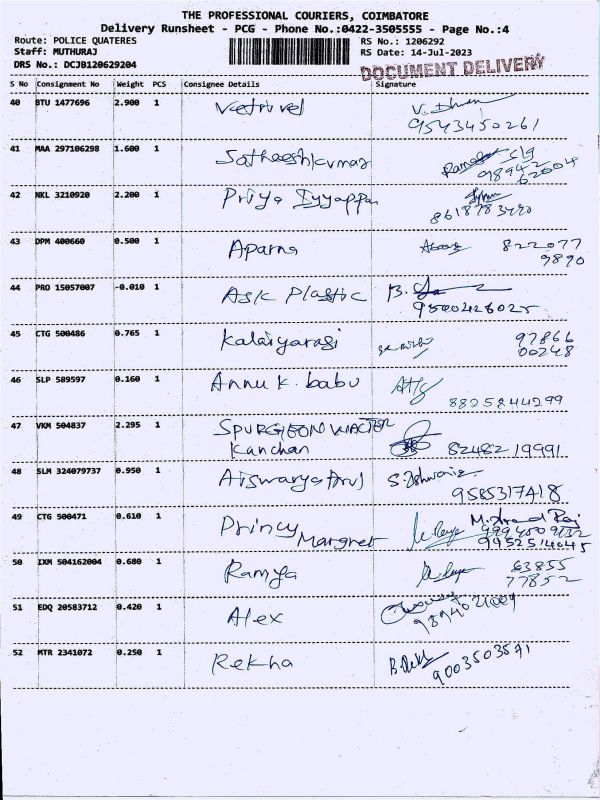 THE PROFESSIONAL COURIERS, COIMBATORE
Delivery Runsheet - PCG - Phone No.:0422-3505555 - Page No.:4
Route: POLICE QUATERES
RS No.: 1206292
Staff: MUTHURAJ
RS Date: 14-Jul-2023
DRS No.: DCJB120629204
DOCUMENT DELIVERY
S No Consignment No Weight PCS Consignee Details Signature
40 BTU 1477696 2.900 1 Vetrivel
9543450261
41 MAA 297106298 1.600 1 Satheeshkumar
98942
62604
42 NKL 3210920 2.200 1 Priya Iyyappan
8618783490
43 DPM 400660 0.500 1 Aparna 822077
9890
44 PRO 15057007 -0.010 1 Ask Plastic
9500426025
45 CTG 500486 0.765 1 Kalaiyarasi 97866
00248
46 SLP 589597 0.160 1 Annu k. babu
8825844299
47 VKM 504837 2.295 1 SPURGEON WACTER
Kanchan 82482 19991
48 SLM 324079737 0.950 1 Aiswarya Arul
9585317418
49 CTG 500471 0.610 1 Princy
Margret 9952514045
50 IXM 504162004 0.680 1 Ramya 63855
77852
51 EDQ 20583712 0.420 1 Alex
52 MTR 2341072 0.250 1 Rekha
9003503591